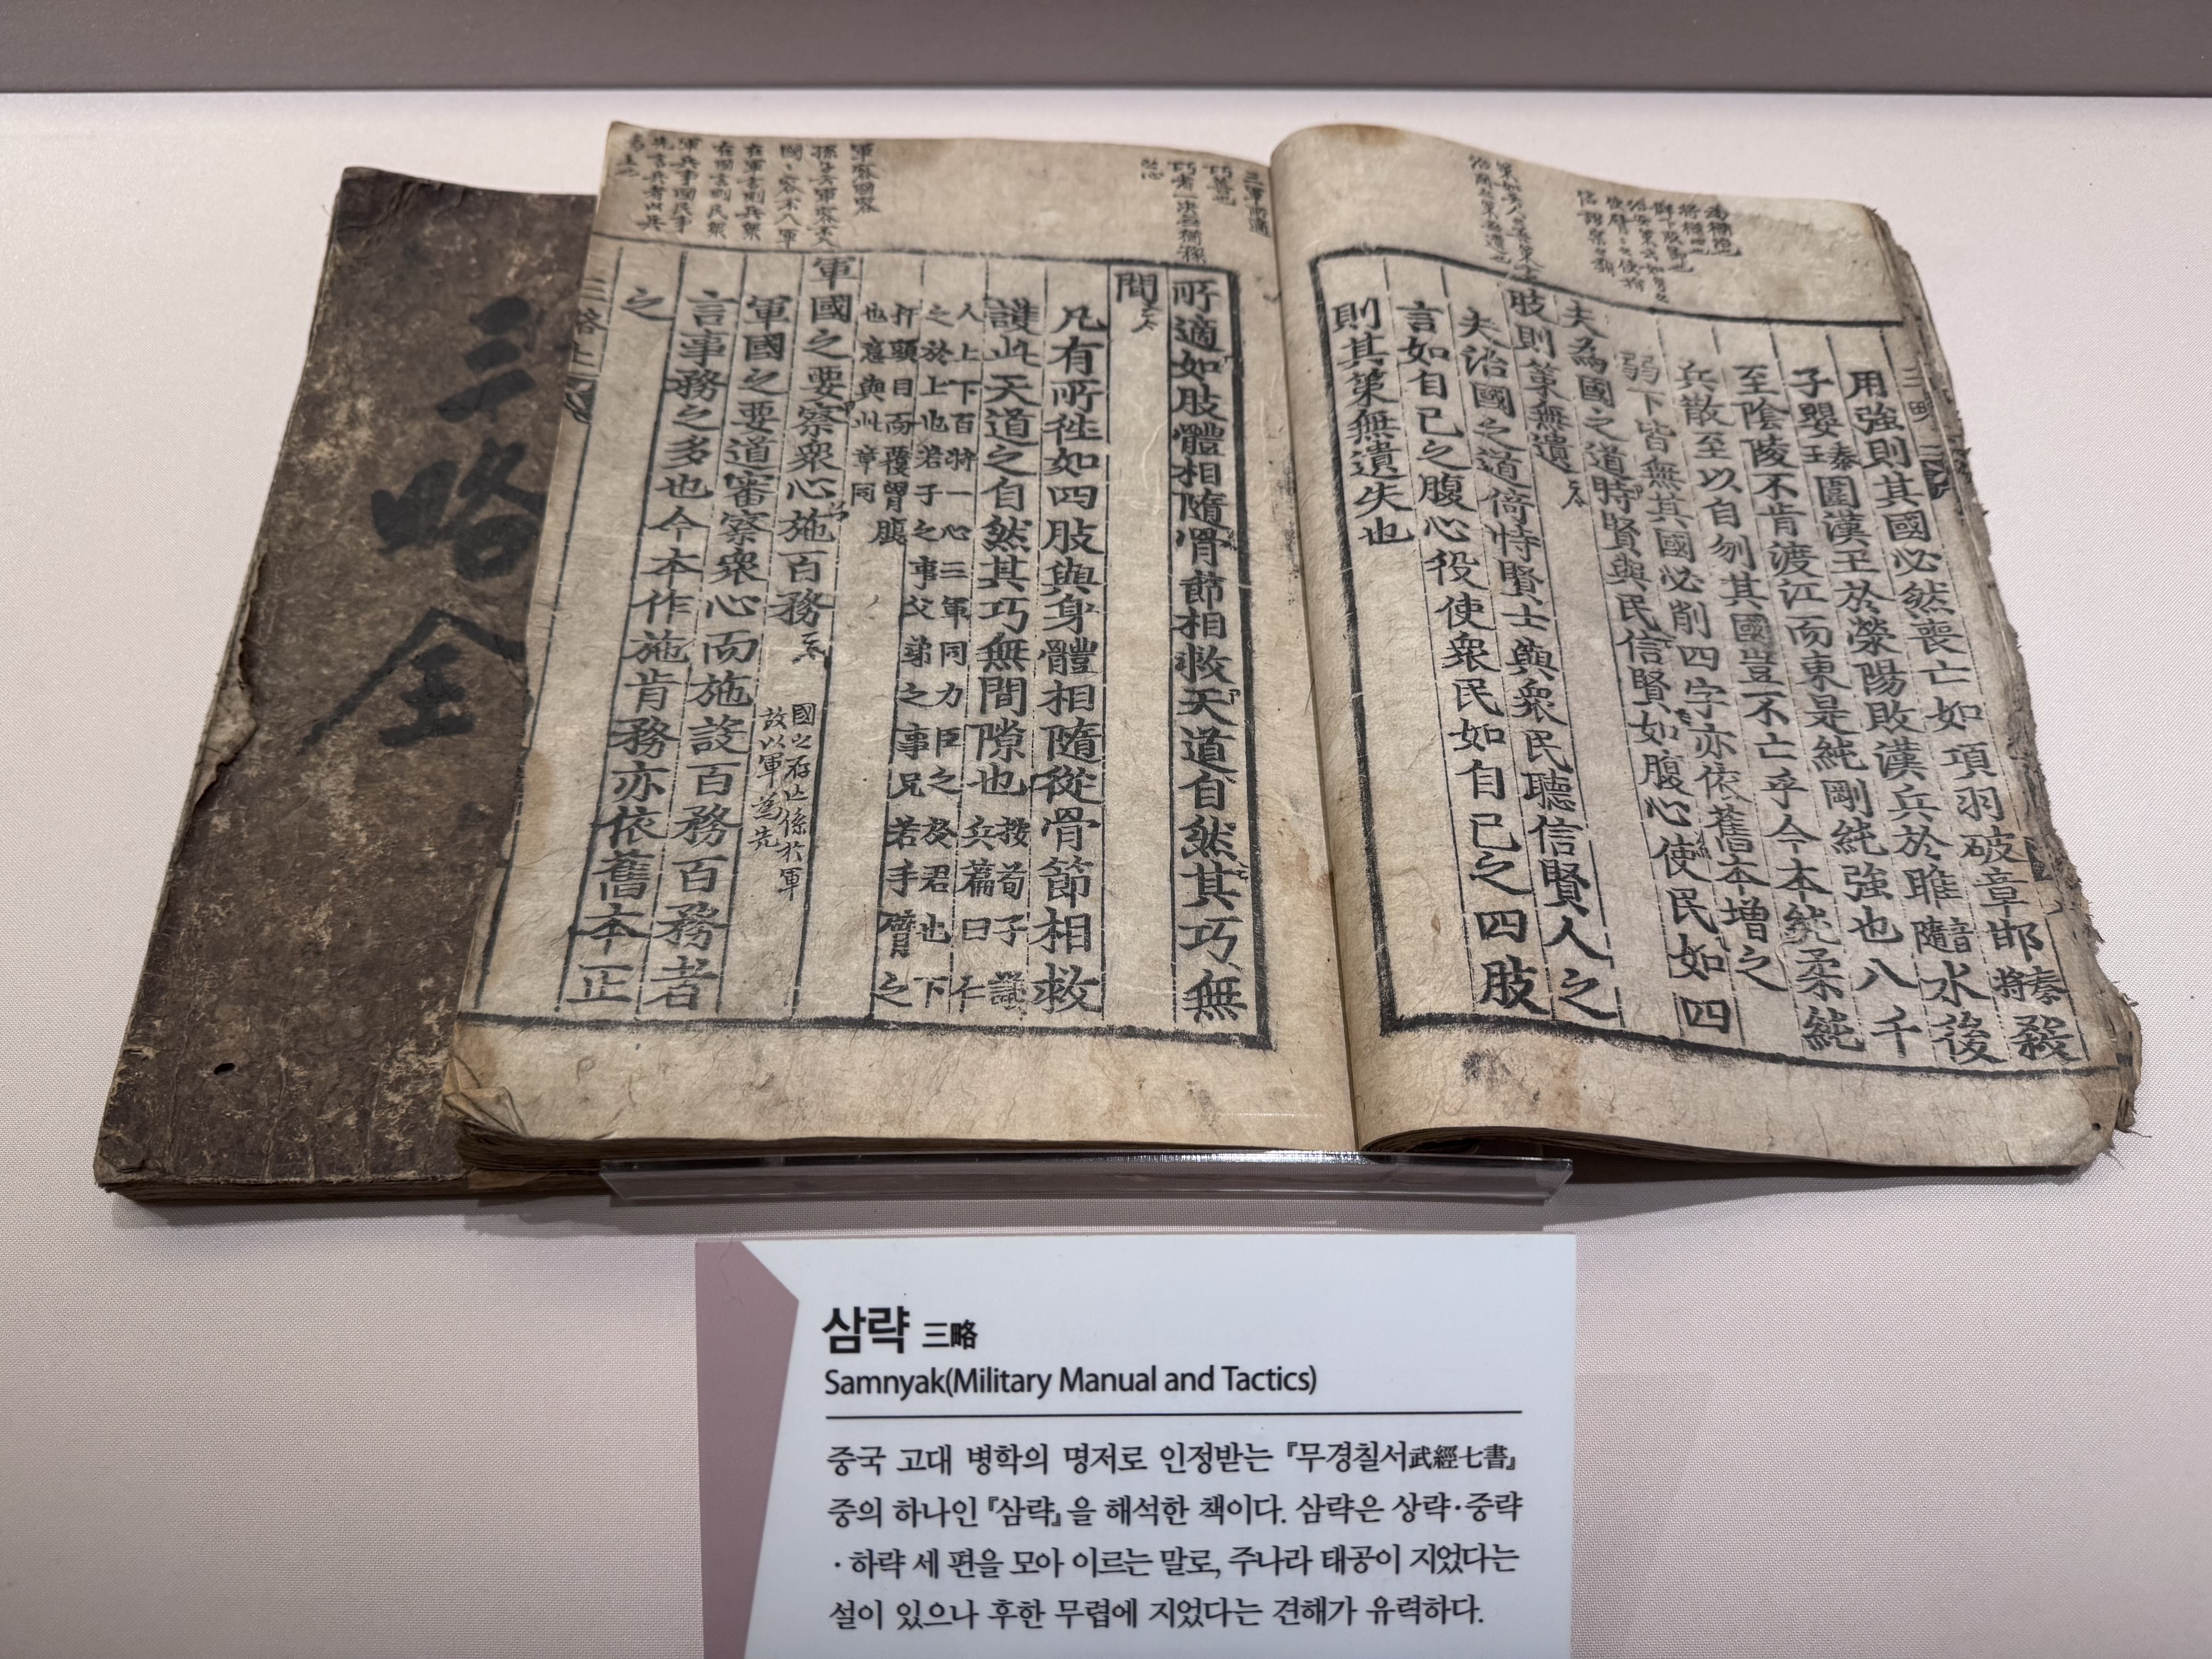 用強則其國必然喪亡如項羽破章邯秦將殺
子嬰秦王圍漢王於滎陽敗漢兵於睢音隨水後
至陰陵不肯渡江而東是純剛純強也八千
兵散至以自刎其國豈不亡乎今本純柔純
弱下皆無其國必削四字亦依舊本增之
夫為國之道恃賢與民信賢如腹心使民如四
肢則策無遺
夫治國之道倚恃賢士與衆民聽信賢人之
言如自己之腹心役使衆民如自己之四肢
則其策無遺失也
所適如肢體相隨骨節相救天道自然其巧無
間
凡有所往如四肢與身體相隨從骨節相救
護此天道之自然其巧無間隙也按荀子議
兵篇曰仁
人上下百將一心三軍同力臣之
之於上也若子之事父弟之事兄若手臂之
打頭目而覆胷腹
也意與此章同
軍國之要察衆心施百務
國之存亡係於軍
故以軍為先
軍國之要道審察衆心而施設百務百務者
言事務之多也今本作施肯務亦依舊本正
之
三略上
三略全
삼략 三略
Samnyak(Military Manual and Tactics)
중국 고대 병학의 명저로 인정받는 『무경칠서武經七書』
중의 하나인 『삼략』을 해석한 책이다. 삼략은 상략·중략
·하략 세 편을 모아 이르는 말로, 주나라 태공이 지었다는
설이 있으나 후한 무렵에 지었다는 견해가 유력하다.